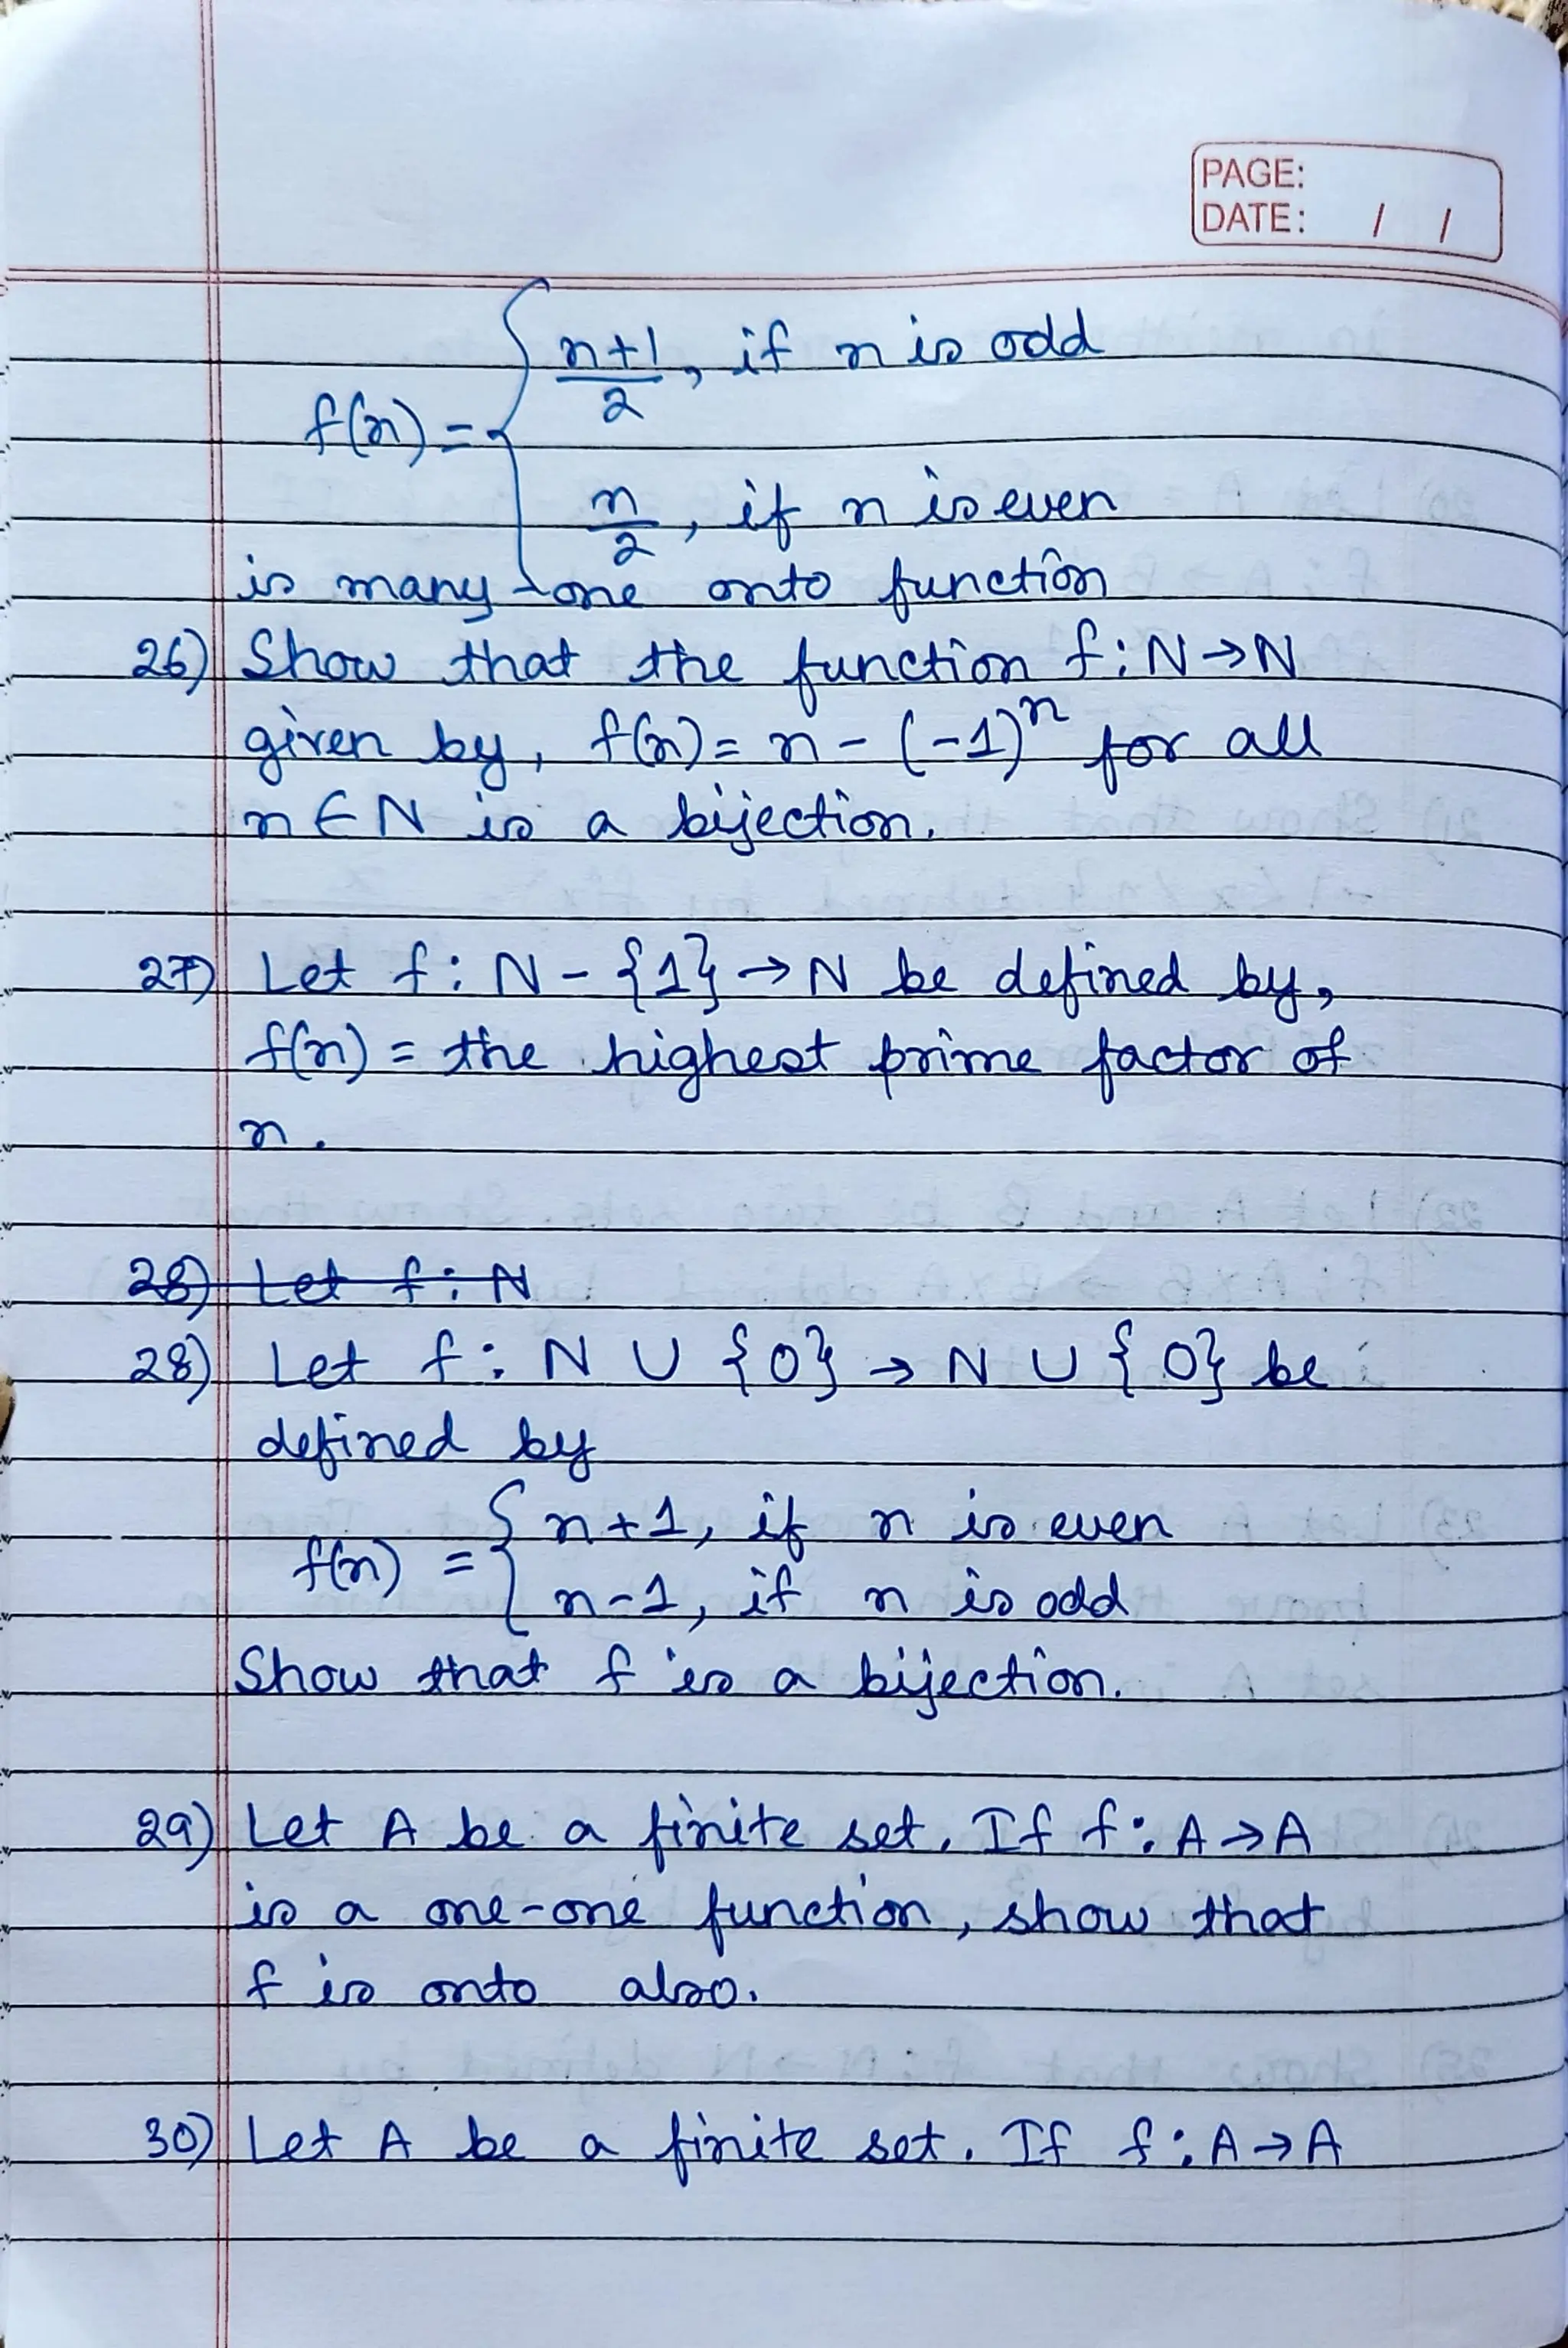 PAGE:
DATE: / /
f(n) = { n+1/2, if n is odd
n/2, if n is even
is many-one onto function
26) Show that the function f: N→N
given by, f(n) = n - (-1)^n for all
n ∈ N is a bijection.
27) Let f: N - {1} → N be defined by,
f(n) = the highest prime factor of
n.
28) Let f: N
28) Let f: N ∪ {0} → N ∪ {0} be
defined by
f(n) = { n+1, if n is even
n-1, if n is odd
Show that f is a bijection.
29) Let A be a finite set. If f: A→A
is a one-one function, show that
f is onto also.
30) Let A be a finite set. If f: A→A